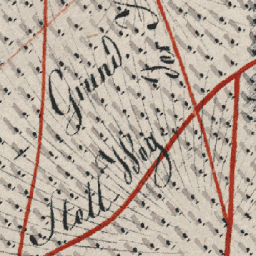 Grund
Stoll Weg